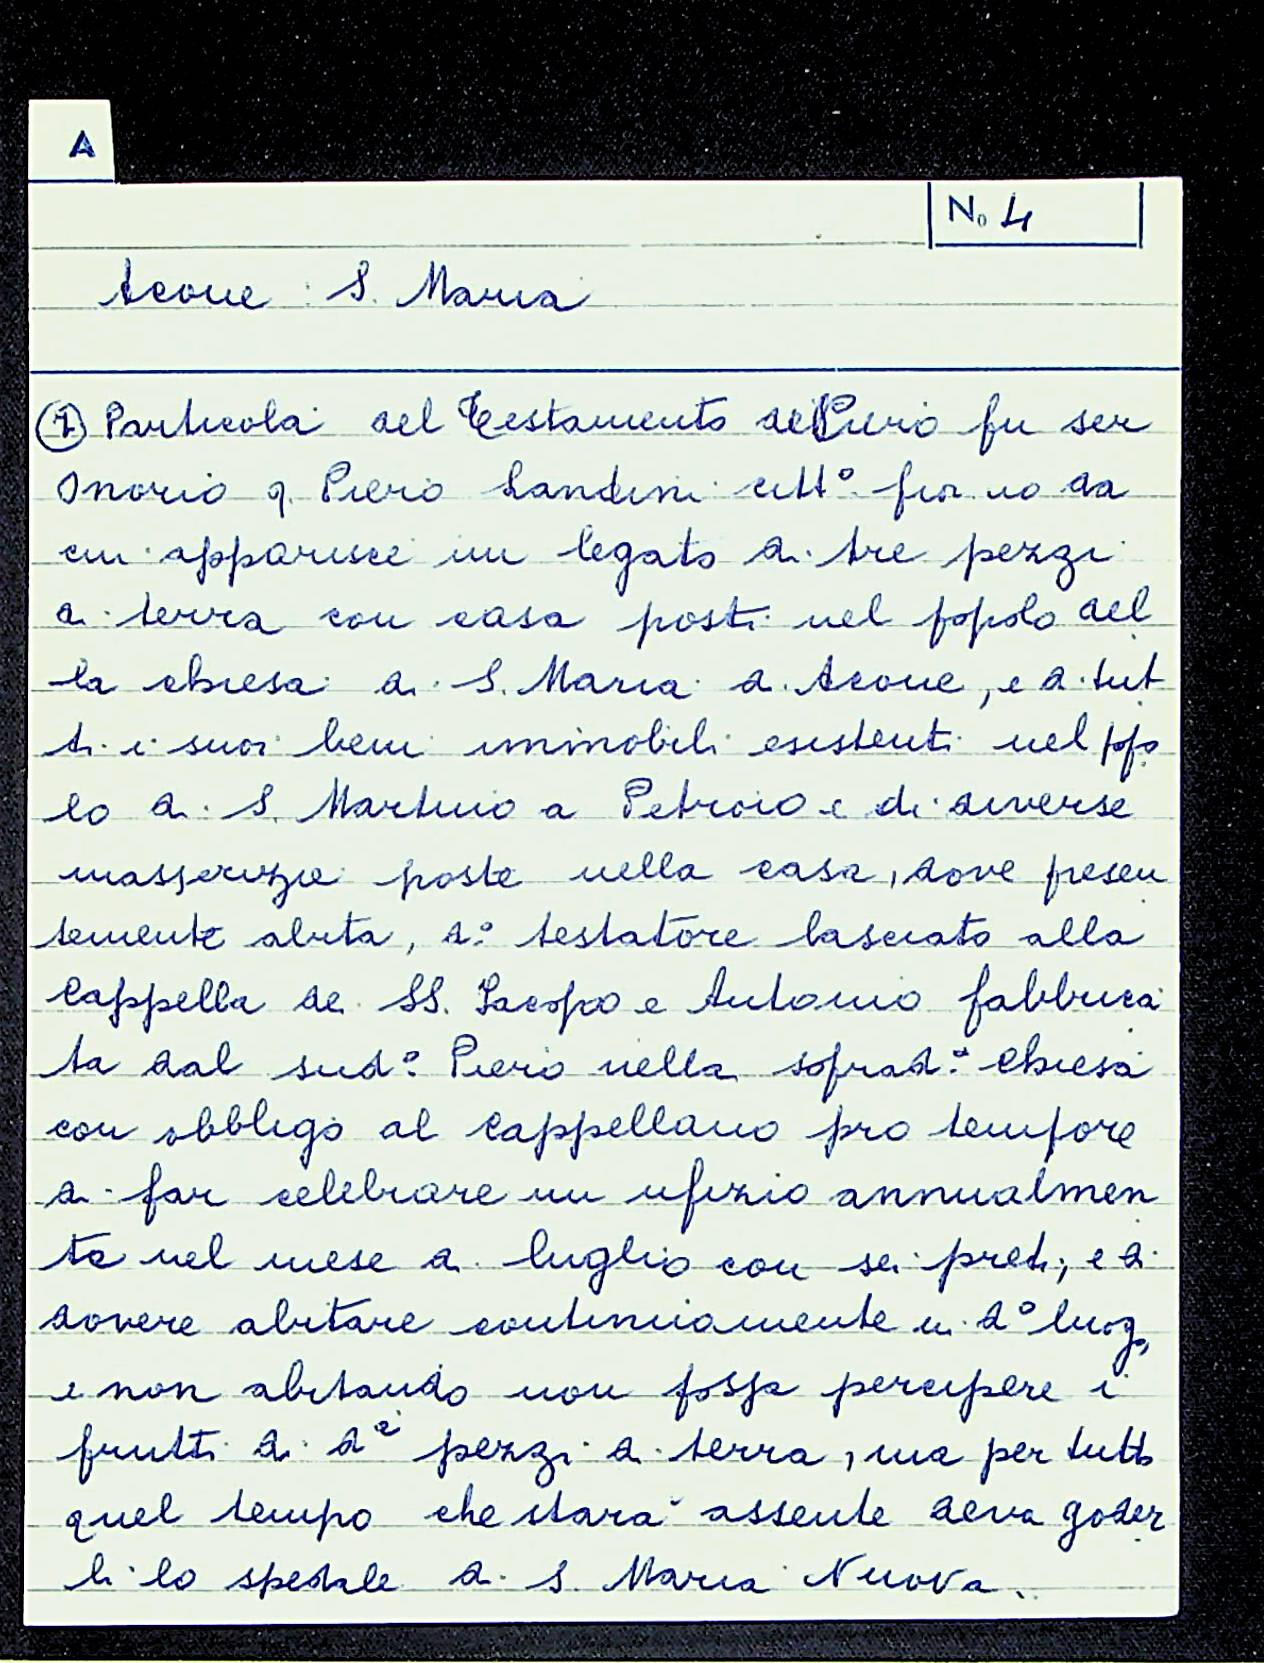 A
No 4
Acone : S. Maria
① Particola del Testamento del Piero fu ser
Onorio q. Piero Landini citt.º fior.no da
cui apparisce un legato di tre pezzi
di terra con casa posti nel popolo del
la chiesa di S. Maria a Acone, e di tut
ti i suoi beni immobili esistenti nel popo
lo di S. Martino a Petroio e di diverse
masserizie poste nella casa, dove presen
temente abita, d.º testatore lasciato alla
Cappella de SS. Jacopo e Antonio fabbrica
ta dal sud.º Piero nella soprad.ª Chiesa
con obbligo al Cappellano pro tempore
di far celebrare un ufizio annualmen
te nel mese di luglio con sei preti; e di
dovere abitare continuamente in d.º luogo,
e non abitando non possa percipere i
frutti di d.ⁱ pezzi di terra, ma per tutto
quel tempo che starà assente deva goder
li lo spedale di S. Maria Nuova.